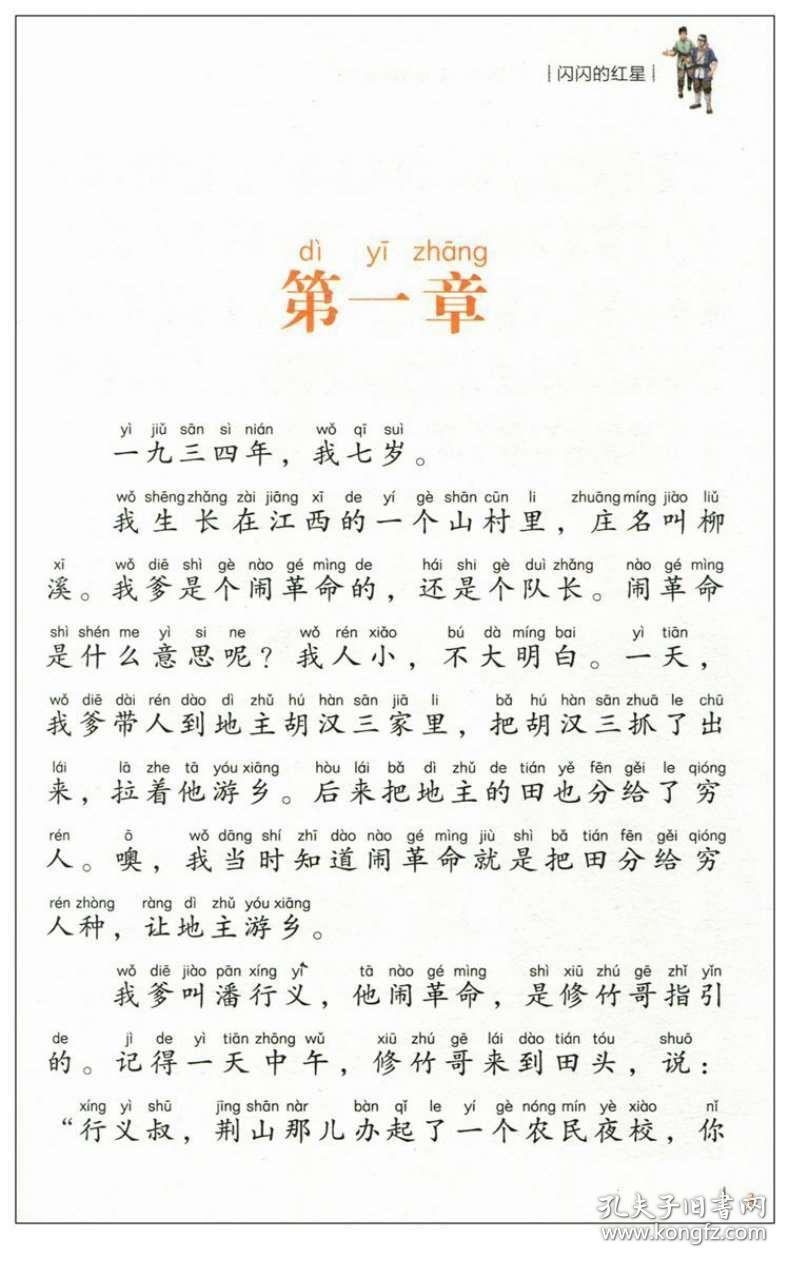 闪闪的红星
dì yī zhāng
第一章
yì jiǔ sān sì nián wǒ qī suì
一九三四年，我七岁。
wǒ shēng zhǎng zài jiāng xī de yí gè shān cūn li zhuāng míng jiào liǔ
我生长在江西的一个山村里，庄名叫柳
xī wǒ diē shì gè nào gé mìng de hái shi gè duì zhǎng nào gé mìng
溪。我爹是个闹革命的，还是个队长。闹革命
shì shén me yì si ne wǒ rén xiǎo bú dà míng bai yì tiān
是什么意思呢？我人小，不大明白。一天，
wǒ diē dài rén dào dì zhǔ hú hàn sān jiā li bǎ hú hàn sān zhuā le chū
我爹带人到地主胡汉三家里，把胡汉三抓了出
lái lā zhe tā yóu xiāng hòu lái bǎ dì zhǔ de tián yě fēn gěi le qióng
来，拉着他游乡。后来把地主的田也分给了穷
rén ō wǒ dāng shí zhī dào nào gé mìng jiù shì bǎ tián fēn gěi qióng
人。噢，我当时知道闹革命就是把田分给穷
rén zhòng ràng dì zhǔ yóu xiāng
人种，让地主游乡。
wǒ diē jiào pān xíng yì tā nào gé mìng shì xiū zhú gē zhǐ yǐn
我爹叫潘行义，他闹革命，是修竹哥指引
de jì de yì tiān zhōng wǔ xiū zhú gē lái dào tián tóu shuō
的。记得一天中午，修竹哥来到田头，说：
xíng yì shū jīng shān nàr bàn qǐ le yí gè nóng mín yè xiào nǐ
“行义叔，荆山那儿办起了一个农民夜校，你
孔夫子旧书网
www.kongfz.com